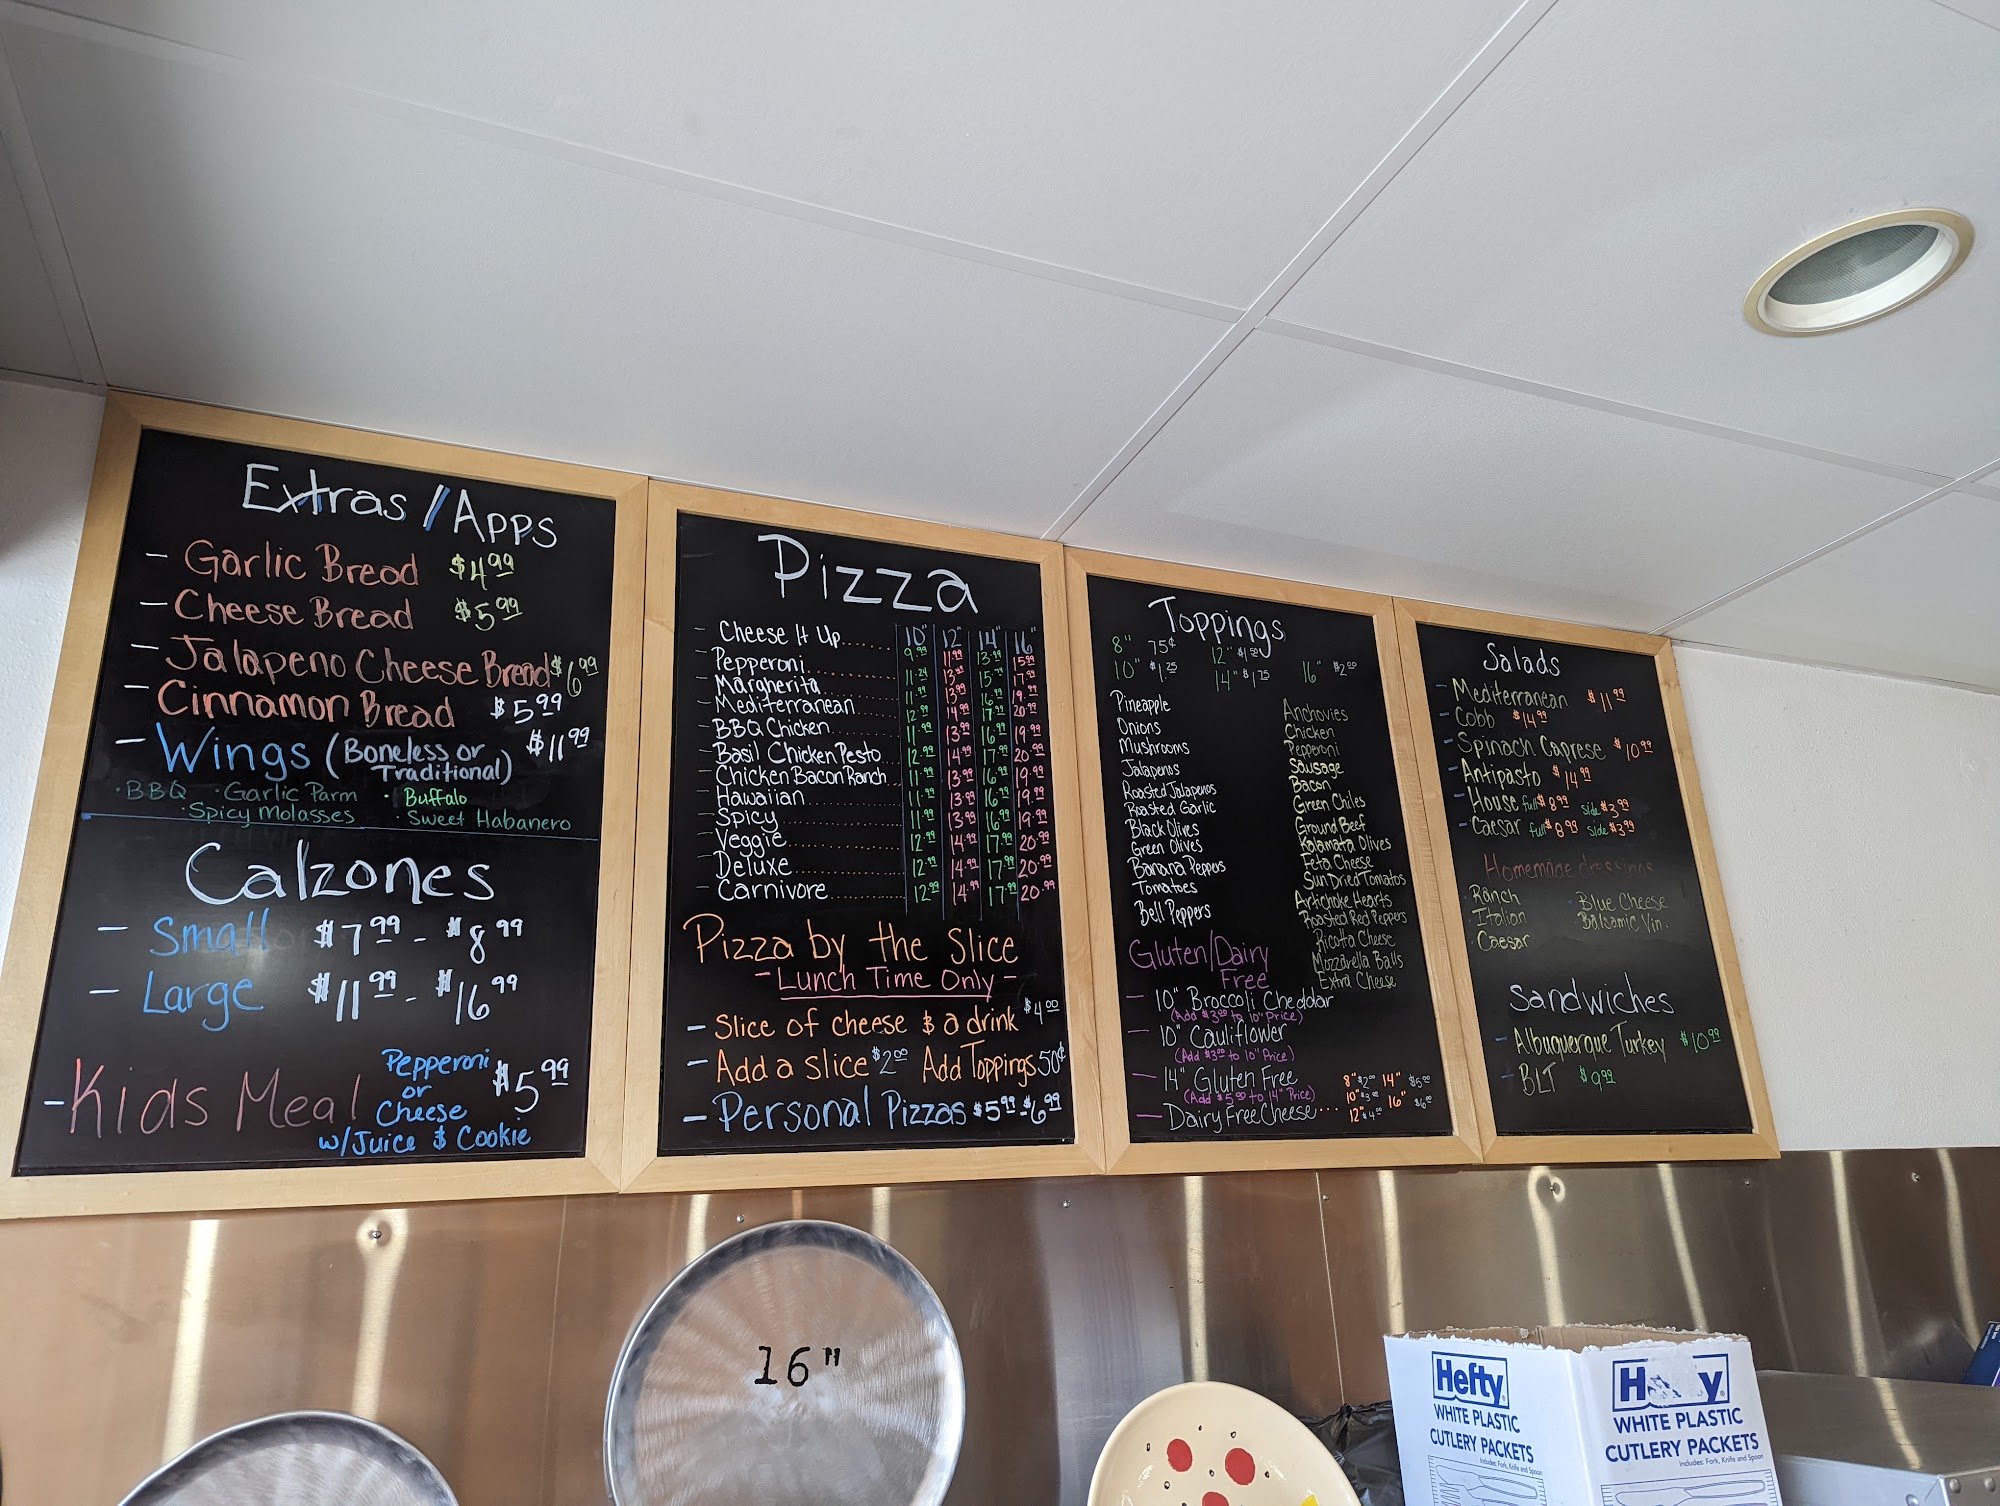 Extras / Apps
- Garlic Bread $4.99
- Cheese Bread $5.99
- Jalapeno Cheese Bread $6.99
- Cinnamon Bread $5.99
- Wings (Boneless or Traditional) $11.99
· BBQ · Garlic Parm · Buffalo
· Spicy Molasses · Sweet Habanero
Calzones
- Small $7.99 - $8.99
- Large $11.99 - $16.99
- Kids Meal Pepperoni or Cheese $5.99
w/Juice & Cookie
Pizza
10" 12" 14" 16"
- Cheese It Up 9.99 11.99 13.99 15.99
Pepperoni 11.24 15.74 17.99
Margherita 11.99 13.99 16.99 19.99
Mediterranean 12.99 14.99 17.99 20.99
BBQ Chicken 11.99 13.99 16.99 19.99
Basil Chicken Pesto 12.99 14.99 17.99 20.99
Chicken Bacon Ranch 11.99 13.99 16.99 19.99
Hawaiian 11.99 13.99 16.99 19.99
Spicy 11.99 13.99 16.99 19.99
Veggie 12.99 14.99 17.99 20.99
Deluxe 12.99 14.99 17.99 20.99
Carnivore 12.99 14.99 17.99 20.99
Pizza by the Slice
- Lunch Time Only -
- Slice of cheese & a drink $4.00
- Add a slice $2.00 Add Toppings 50¢
- Personal Pizzas $5.99-$6.99
Toppings
8" 75¢ 12" $1.50
10" $1.25 14" $1.75 16" $2.00
Pineapple
Onions
Mushrooms
Jalapenos
Roasted Jalapenos
Roasted Garlic
Black Olives
Green Olives
Banana Peppers
Tomatoes
Bell Peppers
Anchovies
Chicken
Pepperoni
Sausage
Bacon
Green Chiles
Ground Beef
Kalamata Olives
Feta Cheese
Sun Dried Tomatos
Artichoke Hearts
Roasted Red Peppers
Ricotta Cheese
Mozzarella Balls
Extra Cheese
Gluten/Dairy
Free
- 10" Broccoli Cheddar
(Add $3.00 to 10" Price)
- 10" Cauliflower
(Add $3.00 to 10" Price)
- 14" Gluten Free
(Add $5.00 to 14" Price)
- Dairy Free Cheese...
8" $2.00 14" $5.00
10" $3.00 16" $6.00
12" $4.00
Salads
- Mediterranean $11.99
- Cobb $14.99
- Spinach Caprese $10.99
- Antipasto $14.99
- House full $8.99 side $3.99
- Caesar full $8.99 side $3.99
Homemade dressings
· Ranch · Blue Cheese
· Italian · Balsamic Vin.
· Caesar
Sandwiches
- Albuquerque Turkey $10.99
- BLT $9.99
16"
Hefty
WHITE PLASTIC
CUTLERY PACKETS
Includes: Fork, Knife and Spoon
H y
WHITE PLASTIC
CUTLERY PACKETS
Includes: Fork, Knife and Spoon